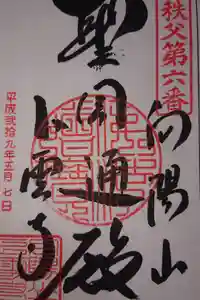 秩父第六番
向陽山
聖圓通殿
卜雲寺
平成貳拾九年五月七日